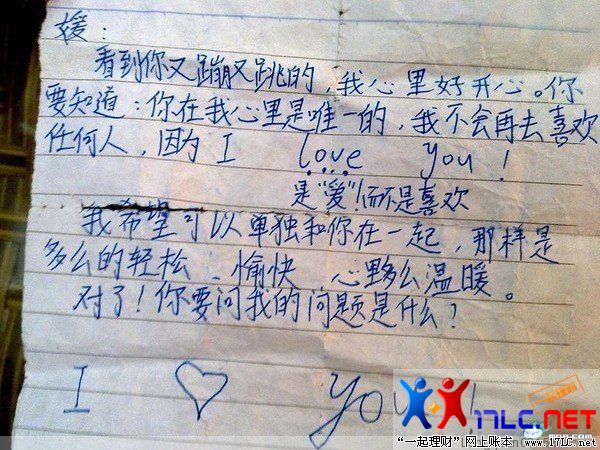 援：
看到你又蹦又跳的，我心里好开心。你
要知道：你在我心里是唯一的，我不会再去喜欢
任何人，因为 I love you！
是“爱”！而不是喜欢
我希望可以单独和你在一起，那样是
多么的轻松、愉快、心里多么温暖。
对了！你要问我的问题是什么？
I ♡ you!
17LC.NET
“一起理财”网上账本 www.17lc.net